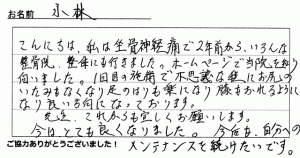 お名前 小林
こんにちは、私は坐骨神経痛で2年前から、いろんな
整骨院、整体にも行きました。ホームページで当院を知り
伺いました。1回目の施術で不思議な程にお尻の
いたみもなくなり足のはりも楽になり膝もおれるように
なり良い方向になっております。
先生、これからも宜しくお願いします。
今は、とても良くなりました。今后も、自分への
ご協力ありがとうございました! メンテナンスを続けたいです。